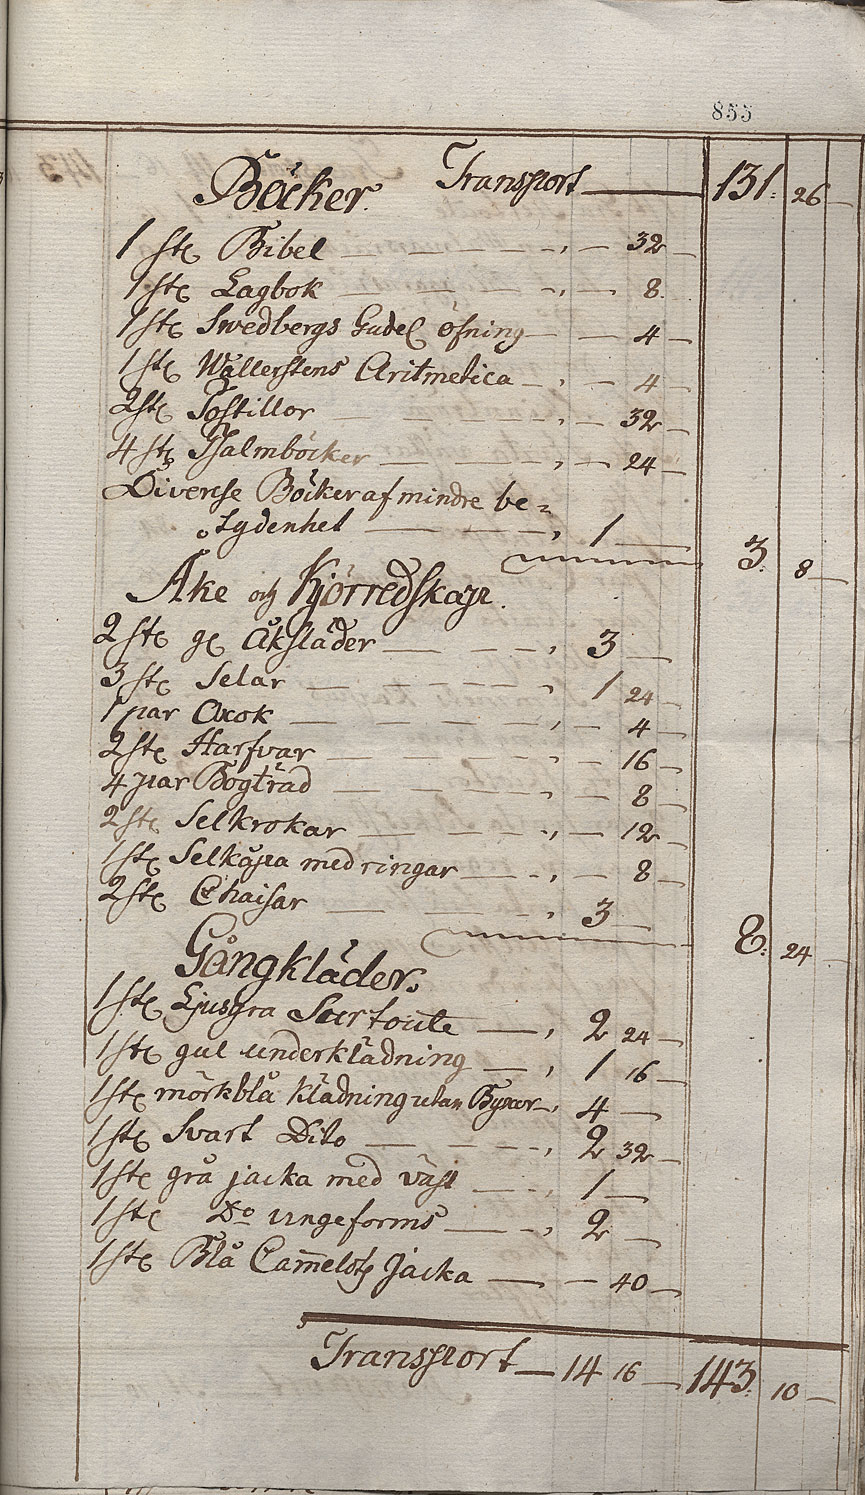 855
Böcker. Transport — 131. 26 —
1 st: Bibel — — — , — 32 —
1 st: Lagbok — — — , — 8.
1 st: Swedbergs Gudel. öfning — — 4 —
1 st: Wallerstens Aritmetica — , — 4 —
2 st: Postillor — — — , — 32 —
4 st: Psalmböcker — — — , — 24 —
Diverse Böcker af mindre be=
tydenhet — — — , 1 — 3. 8 —
Åke och Kjörredskap.
2 st: gl åkslädor — — — , 3 —
3 st: Selar — — — , 1 24 —
1 par Oxok — — — , — 4 —
2 st: Harfvar — — — , — 16 —
4 par Bogträd — — — , — 8 —
2 st: Selkrokar — — — , — 12 —
1 st: Selkåpa med ringar — — , — 8 —
2 st: Chaisar — — — , 3 — 8. 24 —
Gångkläder.
1 st: Ljusgra Surtoute — , 2 24 —
1 st: gul underklädning — , 1 16 —
1 st: mörkblå Klädning utan Byxor — , 4 —
1 st: Svart Dito — — — , 2 32 —
1 st: grå jacka med väst — — , 1 —
1 st: Do ungeforms — — , 2 —
1 st: Blå Camelots Jacka — — 40 —
Transport — 14 16 — 143. 10 —